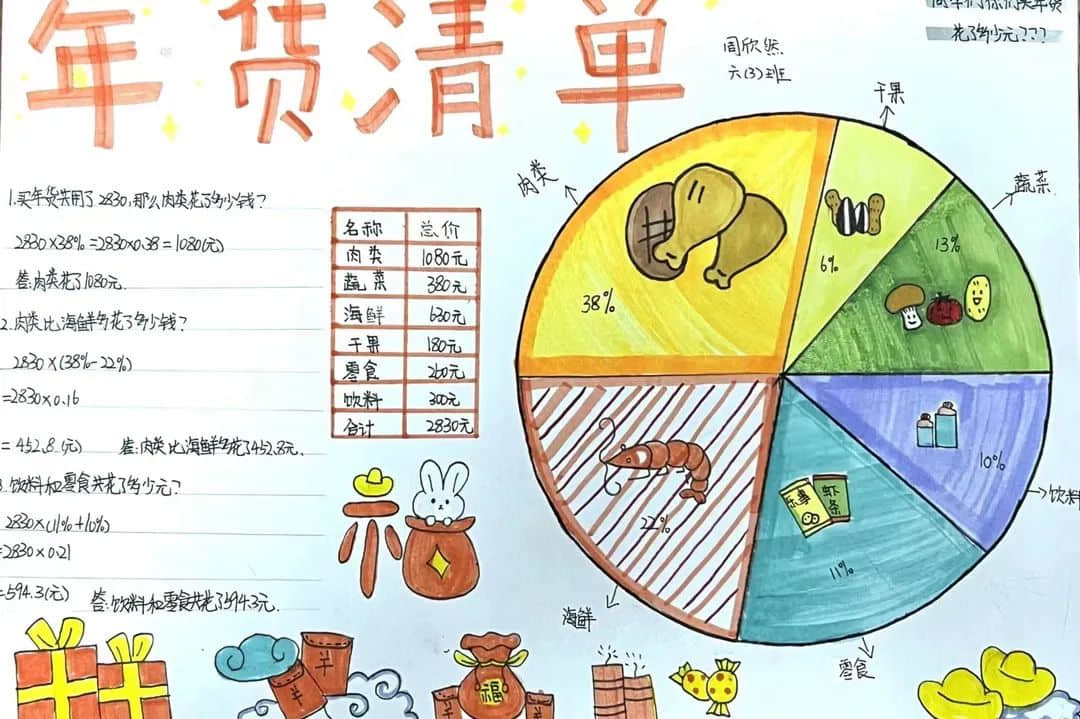 年货清单
周欣然
六(3)班
花了多少元???
1.买年货共用了2830,那么肉类花了多少钱?
2830×38%=2830×0.38=1080(元)
答:肉类花了1080元.
2.肉类比海鲜多花了多少钱?
2830×(38%-22%)
=2830×0.16
=452.8(元) 答:肉类比海鲜多花了452.8元.
饮料和零食共花了多少元?
2830×(11%+10%)
=2830×0.21
=594.3(元) 答:饮料和零食共花了594.3元.
名称 总价
肉类 1080元
蔬菜 380元
海鲜 630元
干果 180元
零食 260元
饮料 300元
合计 2830元
肉类
38%
干果
6%
蔬菜
13%
10%
饮料
虾条
11%
零食
22%
海鲜
福